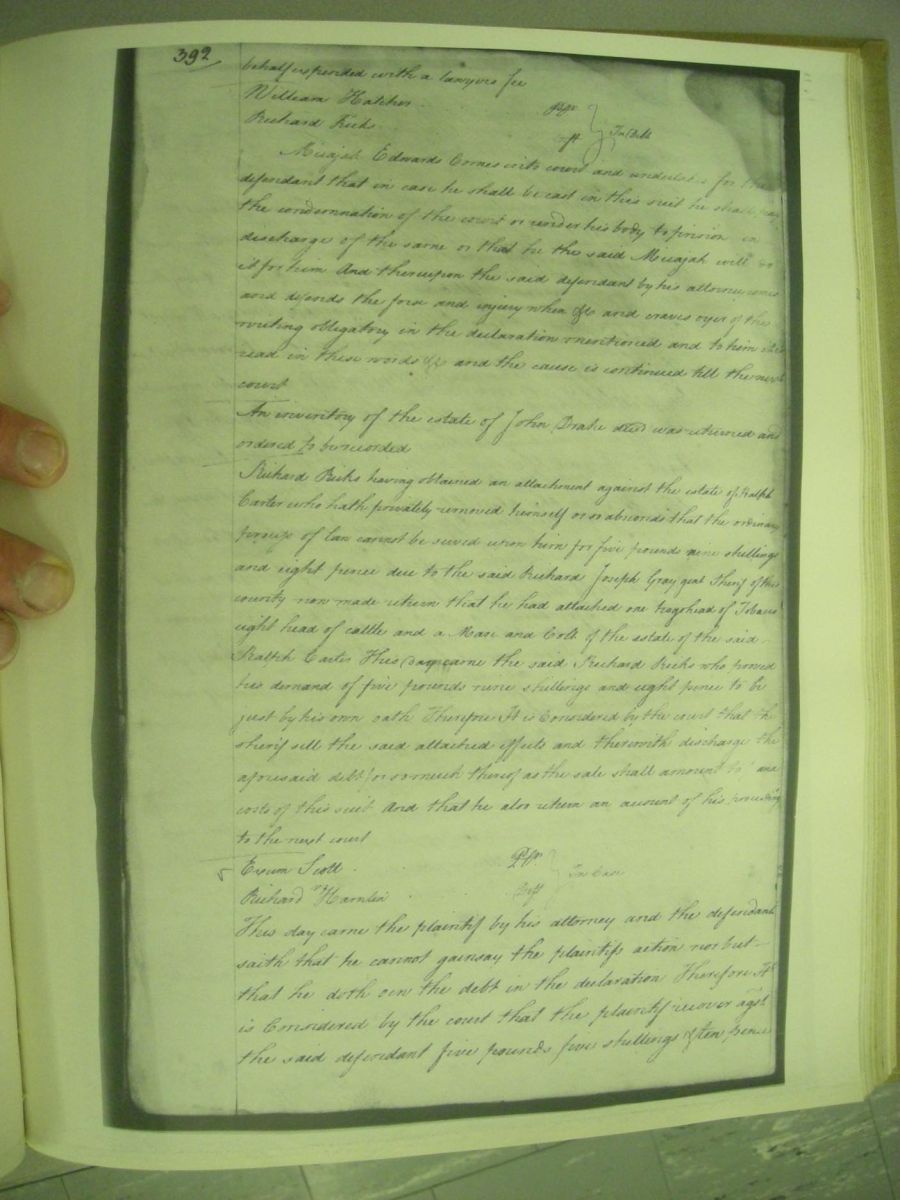 392
behalf expended with a lawyers fee
William Hatcher Plf
Richard Ricks Dft In Debt
Micajah Edwards Comes into court and undertakes for the
defendant that in case he shall be cast in this suit he shall pay
the condemnation of the court or render his body to prison in
discharge of the same or that he the said Micajah will do
it for him And thereupon the said defendant by his attorney comes
and defends the force and injury when &c and craves oyer of the
writing obligatory in the declaration mentioned and to him it is
read in these words &c and the cause is continued till the next
court
An inventory of the estate of John Drake decd was returned and
ordered to be recorded
Richard Ricks having obtained an attachment against the estate of Ralph
Carter who hath privately removed himself or so absconds that the ordinary
process of law cannot be served upon him for five pounds nine shillings
and eight pence due to the said Richard Joseph Gray gent Sherif of this
county now made return that he had attached one hogshead of Tobacco
eight head of cattle and a Mare and Colt of the estate of the said
Ralph Carter This Day came the said Richard Ricks who proved
his demand of five pounds nine shillings and eight pence to be
just by his own oath Therefore It is Considered by the court that the
sherif sell the said attached effects and therewith discharge the
aforesaid debt (or so much thereof as the sale shall amount to) and
costs of this suit And that he also return an account of his proceedings
to the next court
Exum Scott Plf
Richard Hamlin Deft In Case
This day came the plaintif by his attorney and the defendant
saith that he cannot gainsay the plaintifs action nor but
that he doth own the debt in the declaration Therefore It
is Considered by the court that the plaintif recover agst
the said defendant five pounds five shillings & ten pence